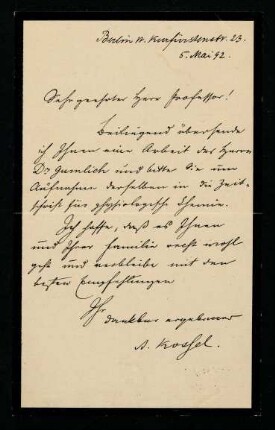 Berlin W. Kurfürstenstr. 23.
5. Mai 92.
Sehr geehrter Herr Professor!
Beiliegend übersende
ich Ihnen eine Arbeit des Herrn
Dr Gumlich und bitte Sie um
Aufnahme derselben in die Zeit-
schrift für physiologische Chemie.
Ich hoffe, daß es Ihnen
und Ihrer Familie recht wohl
geht und verbleibe mit den
besten Empfehlungen
Ihr
dankbar ergebener
A. Kossel.